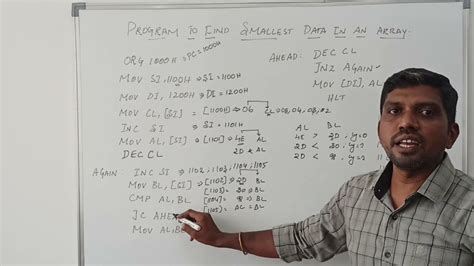 PROGRAM TO FIND SMALLEST DATA IN AN ARRAY.
ORG 1000H ⇒ PC = 1000H
MOV SI, 1100H ⇒ SI = 1100H
MOV DI, 1200H ⇒ DI = 1200H
MOV CL, [SI] ⇒ [1100H] ⇒ 06
INC SI ⇒ SI = 1101H
MOV AL, [SI] ⇒ [1101] ⇒ AL
DEC CL 2D AL
AGAIN: INC SI ⇒ 1102, 1103, 1104, 1105
MOV BL, [SI] ⇒ [1102] ⇒ 2D BL
CMP AL, BL [1103] = BL
[1104] = BL
JC AHE
[1105] = BL
MOV AL, B
AHEAD: DEC CL
JNZ AGAIN
MOV [DI], AL
HLT
AL BL
2D <
2D <